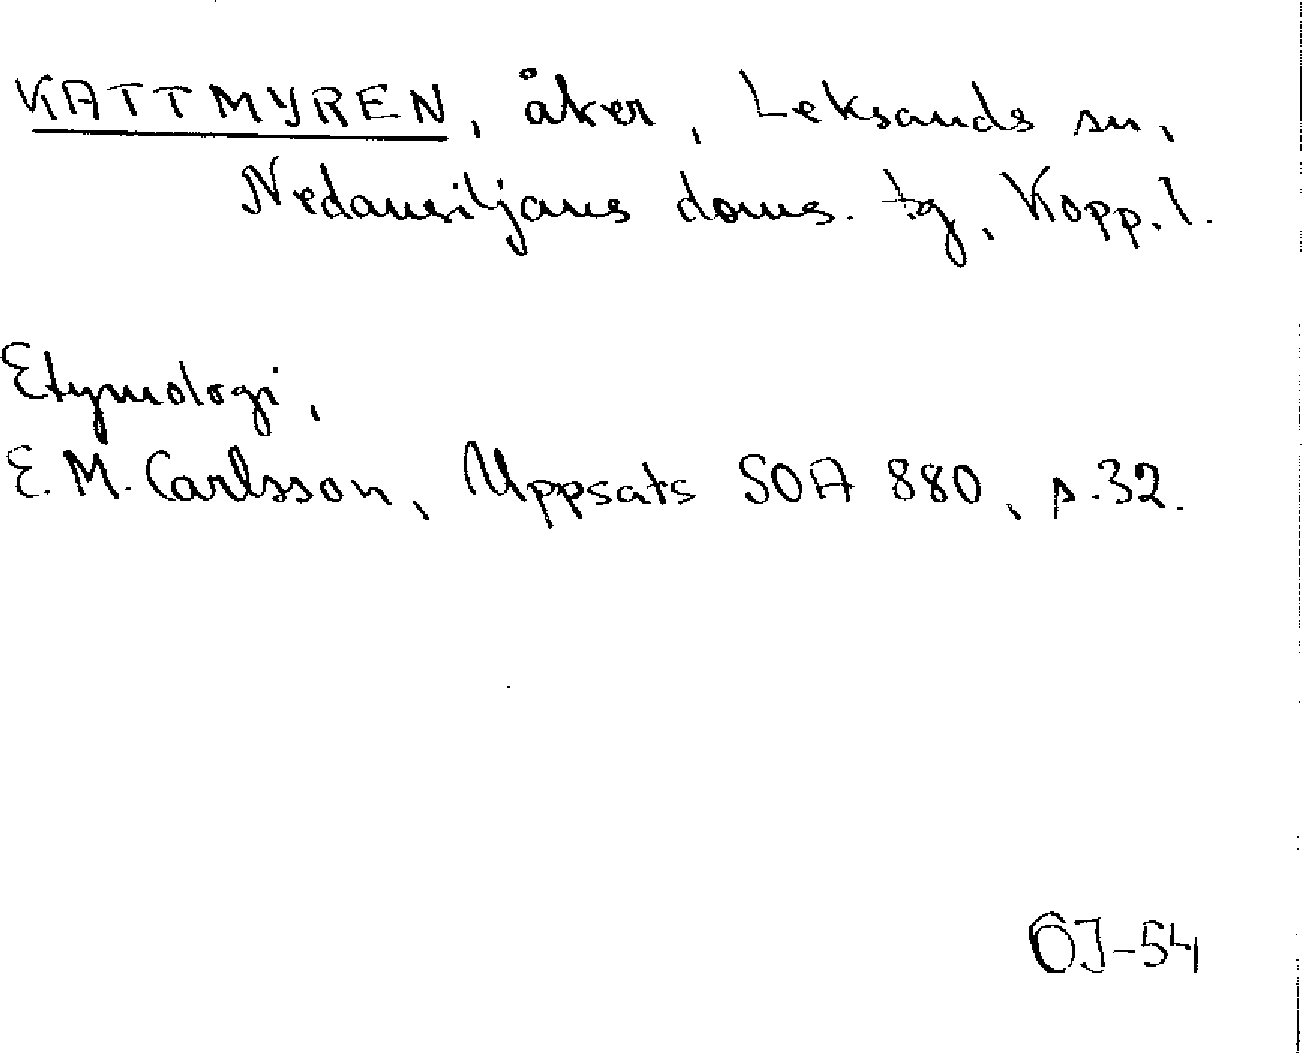 KATTMYREN, åker, Leksands sn,
Nedansiljans doms. tg, Kopp. l.
Etymologi,
E. M. Carlsson, Uppsats SOA 880, s. 32.
OJ-54